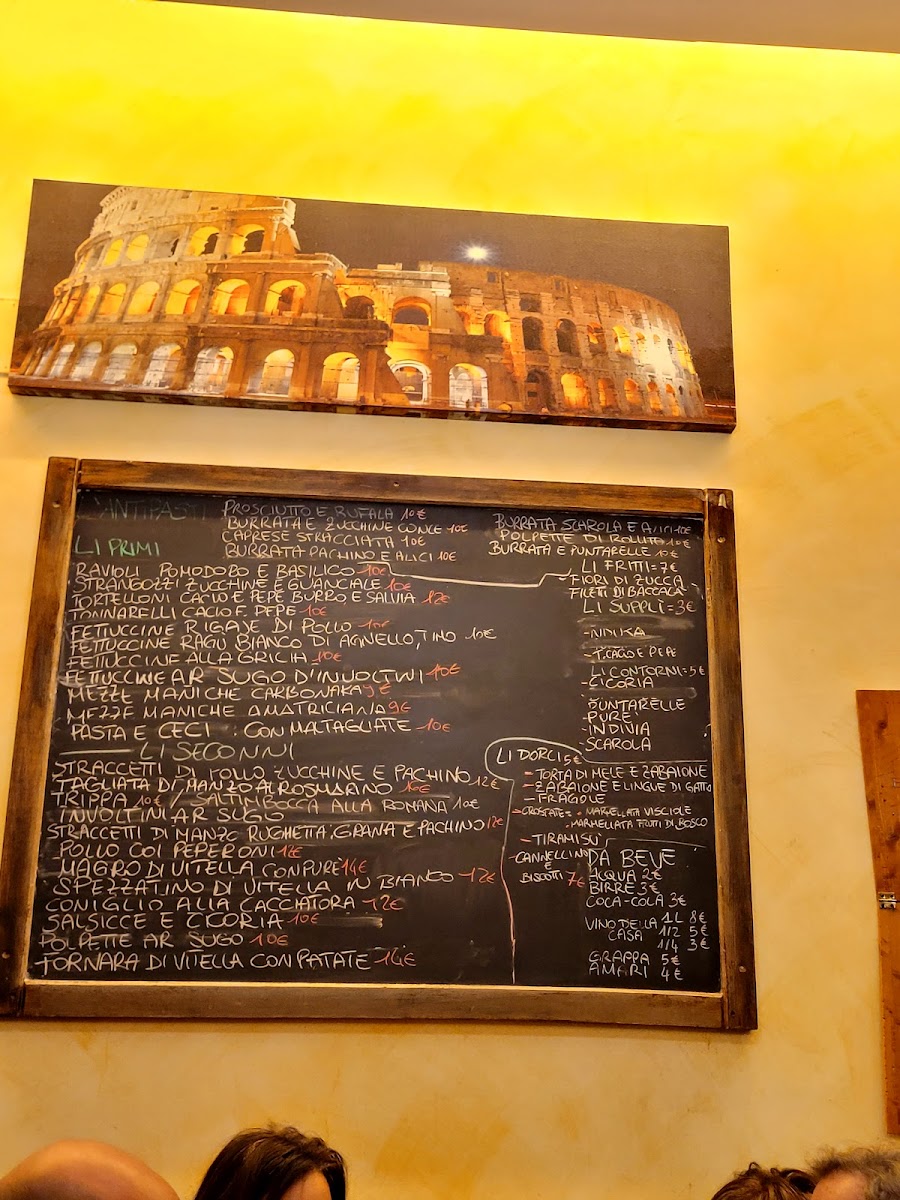 ANTIPASTI
PROSCIUTTO E BUFALA 10€
BURRATA E ZUCCHINE CONCE 10€
CAPRESE STRACCIATA 10€
BURRATA PACHINO E ALICI 10€
BURRATA SCAROLA E ALICI 10€
POLPETTE DI BOLLITO 10€
BURRATA E PUNTARELLE 10€
LI PRIMI
RAVIOLI POMODORO E BASILICO 10€
STRANGOZZI ZUCCHINE E GUANCIALE 10€
TORTELLONI CACIO E PEPE BURRO E SALVIA 12€
TONNARELLI CACIO E PEPE 10€
FETTUCCINE RIGAJE DI POLLO 10€
FETTUCCINE RAGU BIANCO DI AGNELLO, TIMO 10€
FETTUCCINE ALLA GRICIA 10€
FETTUCCINE AR SUGO D'INVOLTINI 10€
MEZZE MANICHE CARBONARA 9€
MEZZE MANICHE AMATRICIANA 9€
PASTA E CECI CON MALTAGLIATE 10€
LI SECONNI
STRACCETTI DI POLLO ZUCCHINE E PACHINO 12€
TAGLIATA DI MANZO AL ROSMARINO 16€
TRIPPA 10€ / SALTIMBOCCA ALLA ROMANA 10€
INVOLTINI AR SUGO
STRACCETTI DI MANZO RUGHETTA, GRANA E PACHINO 12€
POLLO COI PEPERONI 12€
MAGRO DI VITELLA CON PURE 14€
SPEZZATINO DI VITELLA IN BIANCO 12€
CONIGLIO ALLA CACCIATORA 12€
SALSICCE E CICORIA 10€
POLPETTE AR SUGO 10€
FORNARA DI VITELLA CON PATATE 14€
LI FRITTI = 7€
FIORI DI ZUCCA
FILETTI DI BACCALA
LI SUPPLI = 3€
- NDUJA
- T. CACIO E PEPE
LI CONTORNI = 5€
- CICORIA
PUNTARELLE
- PURE'
- INDIVIA
- SCAROLA
LI DORCI 5€
- TORTA DI MELE E ZABAIONE
- ZABAIONE E LINGUE DI GATTO
- FRAGOLE
- CROSTATE = - MARMELLATA VISCIOLE
- MARMELLATA FRUTTI DI BOSCO
- TIRAMISU'
- CANNELLINO E BISCOTTI 7€
DA BEVE
ACQUA 2€
BIRRE 3€
COCA-COLA 3€
VINO DELLA CASA 1L 8€
1/2 5€
1/4 3€
GRAPPA 5€
AMARI 4€